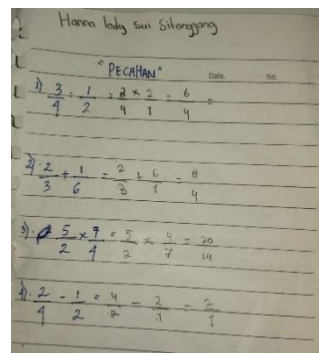 Hanna lady suri Sitanggang
"PECAHAN"
Date. No.
1) 3/4 : 1/2 = 3/4 × 2/1 = 6/4 =
2). 2/3 + 1/6 = 2/3 + 6/1 = 8/4
3). 5/2 × 7/4 = 5/2 × 4/7 = 20/14
4). 2/4 - 1/2 = 4/2 - 2/1 = 2/1